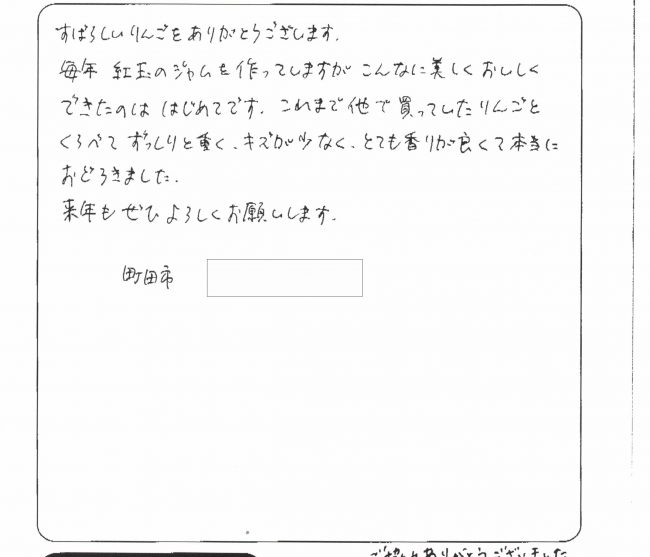 すばらしいりんごをありがとうございます.
毎年 紅玉のジャムを作っていますが こんなに美しくおいしく
できたのは はじめてです. これまで他で買っていたりんごと
くらべて ずっしりと重く、キズが少なく、とても香りが良くて本当に
おどろきました.
来年も ぜひ よろしくお願いします.
町田市
ありがとうございました